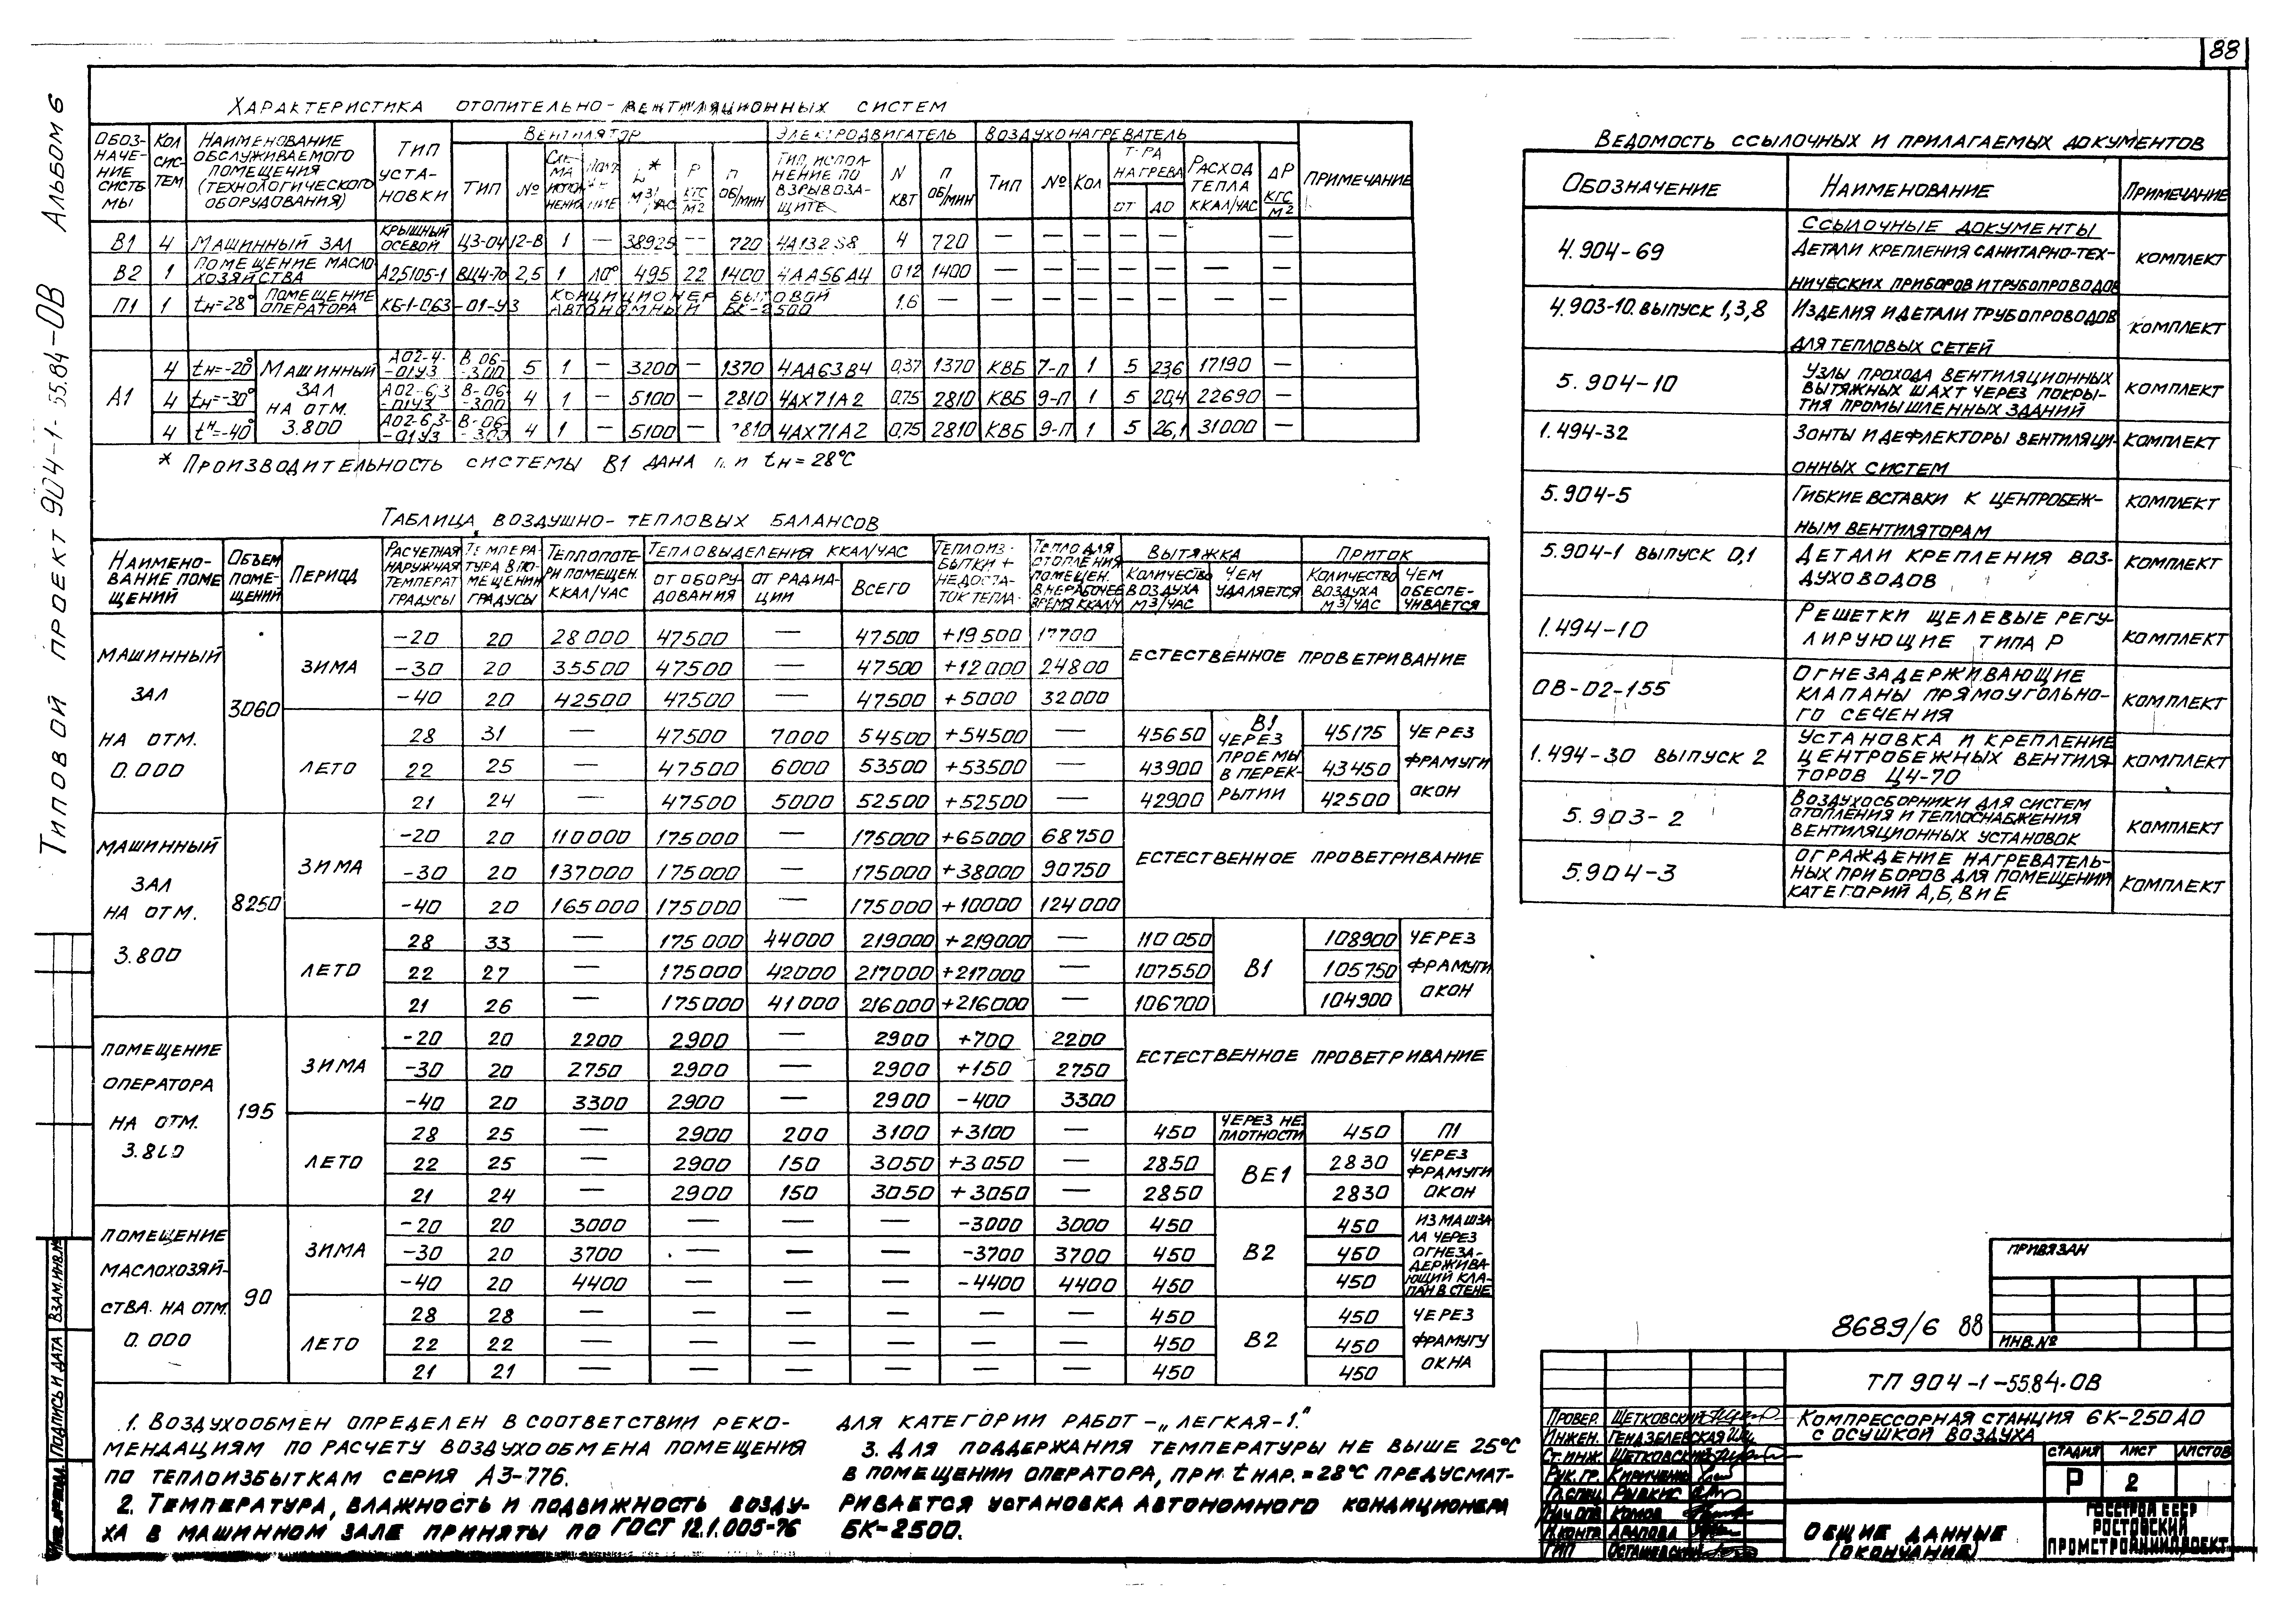 88
Типовой проект 904-1-55.84-ОВ Альбом 6
Характеристика отопительно-вентиляционных систем
Обозначение системы | Кол систем | Наименование обслуживаемого помещения (технологического оборудования) | Тип установки | Вентилятор | Электродвигатель | Воздухонагреватель | Примечание
Тип | № | Схема исполнения | L* м³/час | P кгс/м² | п об/мин | Тип, исполнение по взрывозащите | N квт | п об/мин | Тип | № | Кол | Т-ра нагрева от до | Расход тепла ккал/час | ΔP кгс/м²
В1 | 4 | Машинный зал | Крышный осевой | ЦЗ-04 | 12-В | 1 | — | 38925 | — | 720 | 4А132S8 | 4 | 720 | — | — | — | — | — | — | —
В2 | 1 | Помещение маслохозяйства | А2,5105-1 | ВЦ4-70 | 2,5 | 1 | Л0° | 495 | 22 | 1400 | 4АА56А4 | 0,12 | 1400 | — | — | — | — | — | — | —
П1 | 1 | tн=28° | Помещение оператора | КБ-1-0,63-01-У3 | Кондиционер бытовой автономный БК-2500 | 1,6 | — | — | — | — | — | — | — | —
А1 | 4 | tн=-20° | Машинный зал на отм. 3.800 | А02-4-01У3 | В.06-300 | 5 | 1 | — | 3200 | — | 1370 | 4АА63В4 | 0,37 | 1370 | КВБ | 7-п | 1 | 5 | 23,6 | 17190 | —
4 | tн=-30° | А02-6,3-01У3 | В-06-300 | 4 | 1 | — | 5100 | — | 2810 | 4АХ71А2 | 0,75 | 2810 | КВБ | 9-п | 1 | 5 | 20,4 | 22690 | —
4 | tн=-40° | А02-6,3-01У3 | В-06-300 | 4 | 1 | — | 5100 | — | 2810 | 4АХ71А2 | 0,75 | 2810 | КВБ | 9-п | 1 | 5 | 26,1 | 31000 | —
* Производительность системы В1 дана при tн=28°С
Таблица воздушно-тепловых балансов
Наименование помещений | Объем помещений | Период | Расчетная наружная температ градусы | Температура в помещении градусы | Теплопотери помещен. ккал/час | Тепловыделения ккал/час | Теплоизбытки + недостаток тепла - | Тепло для отопления помещен. в нерабочее время ккал/ч | Вытяжка | Приток
от оборудования | от радиации | Всего | Количество воздуха м³/час | Чем удаляется | Количество воздуха м³/час | Чем обеспечивается
Машинный зал на отм. 0.000 | 3060 | Зима | -20 | 20 | 28000 | 47500 | — | 47500 | +19500 | 17700 | Естественное проветривание
-30 | 20 | 35500 | 47500 | — | 47500 | +12000 | 24800
-40 | 20 | 42500 | 47500 | — | 47500 | +5000 | 32000
Лето | 28 | 31 | — | 47500 | 7000 | 54500 | +54500 | — | 45650 | В1 через проемы в перекрытии | 45175 | Через фрамуги окон
22 | 25 | — | 47500 | 6000 | 53500 | +53500 | — | 43900 | 43450
21 | 24 | — | 47500 | 5000 | 52500 | +52500 | — | 42900 | 42500
Машинный зал на отм. 3.800 | 8250 | Зима | -20 | 20 | 110000 | 175000 | — | 175000 | +65000 | 68750 | Естественное проветривание
-30 | 20 | 137000 | 175000 | — | 175000 | +38000 | 90750
-40 | 20 | 165000 | 175000 | — | 175000 | +10000 | 124000
Лето | 28 | 33 | — | 175000 | 44000 | 219000 | +219000 | — | 110050 | В1 | 108900 | Через фрамуги окон
22 | 27 | — | 175000 | 42000 | 217000 | +217000 | — | 107550 | 105750
21 | 26 | — | 175000 | 41000 | 216000 | +216000 | — | 106700 | 104900
Помещение оператора на отм. 3.800 | 195 | Зима | -20 | 20 | 2200 | 2900 | — | 2900 | +700 | 2200 | Естественное проветривание
-30 | 20 | 2750 | 2900 | — | 2900 | +150 | 2750
-40 | 20 | 3300 | 2900 | — | 2900 | -400 | 3300
Лето | 28 | 25 | — | 2900 | 200 | 3100 | +3100 | — | 450 | Через неплотности | 450 | П1
22 | 25 | — | 2900 | 150 | 3050 | +3050 | — | 2850 | ВЕ1 | 2830 | Через фрамуги окон
21 | 24 | — | 2900 | 150 | 3050 | +3050 | — | 2850 | 2830
Помещение маслохозяйства. на отм. 0.000 | 90 | Зима | -20 | 20 | 3000 | — | — | — | -3000 | 3000 | 450 | В2 | 450 | Из машзала через огнезадерживающий клапан в стене
-30 | 20 | 3700 | — | — | — | -3700 | 3700 | 450 | 450
-40 | 20 | 4400 | — | — | — | -4400 | 4400 | 450 | 450
Лето | 28 | 28 | — | — | — | — | — | — | 450 | В2 | 450 | Через фрамугу окна
22 | 22 | — | — | — | — | — | — | 450 | 450
21 | 21 | — | — | — | — | — | — | 450 | 450
1. Воздухообмен определен в соответствии реко-
мендациям по расчету воздухообмена помещения
по теплоизбыткам серия А3-776.
2. Температура, влажность и подвижность возду-
ха в машинном зале приняты по ГОСТ 12.1.005-76
для категории работ - „легкая-1."
3. Для поддержания температуры не выше 25°С
в помещении оператора, при tнар.=28°С предусмат-
ривается установка автономного кондиционера
БК-2500.
Ведомость ссылочных и прилагаемых документов
Обозначение | Наименование | Примечание
Ссылочные документы
4.904-69 | Детали крепления санитарно-технических приборов и трубопроводов | комплект
4.903-10. выпуск 1,3,8 | Изделия и детали трубопроводов для тепловых сетей | комплект
5.904-10 | Узлы прохода вентиляционных вытяжных шахт через покрытия промышленных зданий | комплект
1.494-32 | Зонты и дефлекторы вентиляционных систем | комплект
5.904-5 | Гибкие вставки к центробежным вентиляторам | комплект
5.904-1 выпуск 0,1 | Детали крепления воздуховодов | комплект
1.494-10 | Решетки щелевые регулирующие типа Р | комплект
ОВ-02-155 | Огнезадерживающие клапаны прямоугольного сечения | комплект
1.494-30 выпуск 2 | Установка и крепление центробежных вентиляторов Ц4-70 | комплект
5.903-2 | Воздухосборники для систем отопления и теплоснабжения вентиляционных установок | комплект
5.904-3 | Ограждение нагревательных приборов для помещений категорий А,Б,В и Е | комплект
Привязан
Инв.№
8689/6 88
ТП 904-1-55.84.ОВ
Компрессорная станция 6К-250АО
с осушкой воздуха
Провер. Щетковский
Инжен. Гендзелевская
Ст.инж. Щетковский
Рук.гр. Кириченко
Гл.спец Рывкис
Нач.отд Комов
Н.контр Арапова
ГИП Осташевский
Стадия | Лист | Листов
Р | 2
Общие данные
(окончание)
Госстрой СССР
Ростовский
Промстройниипроект
Взам.инв.№
Подпись и дата
Инв.№ подл.